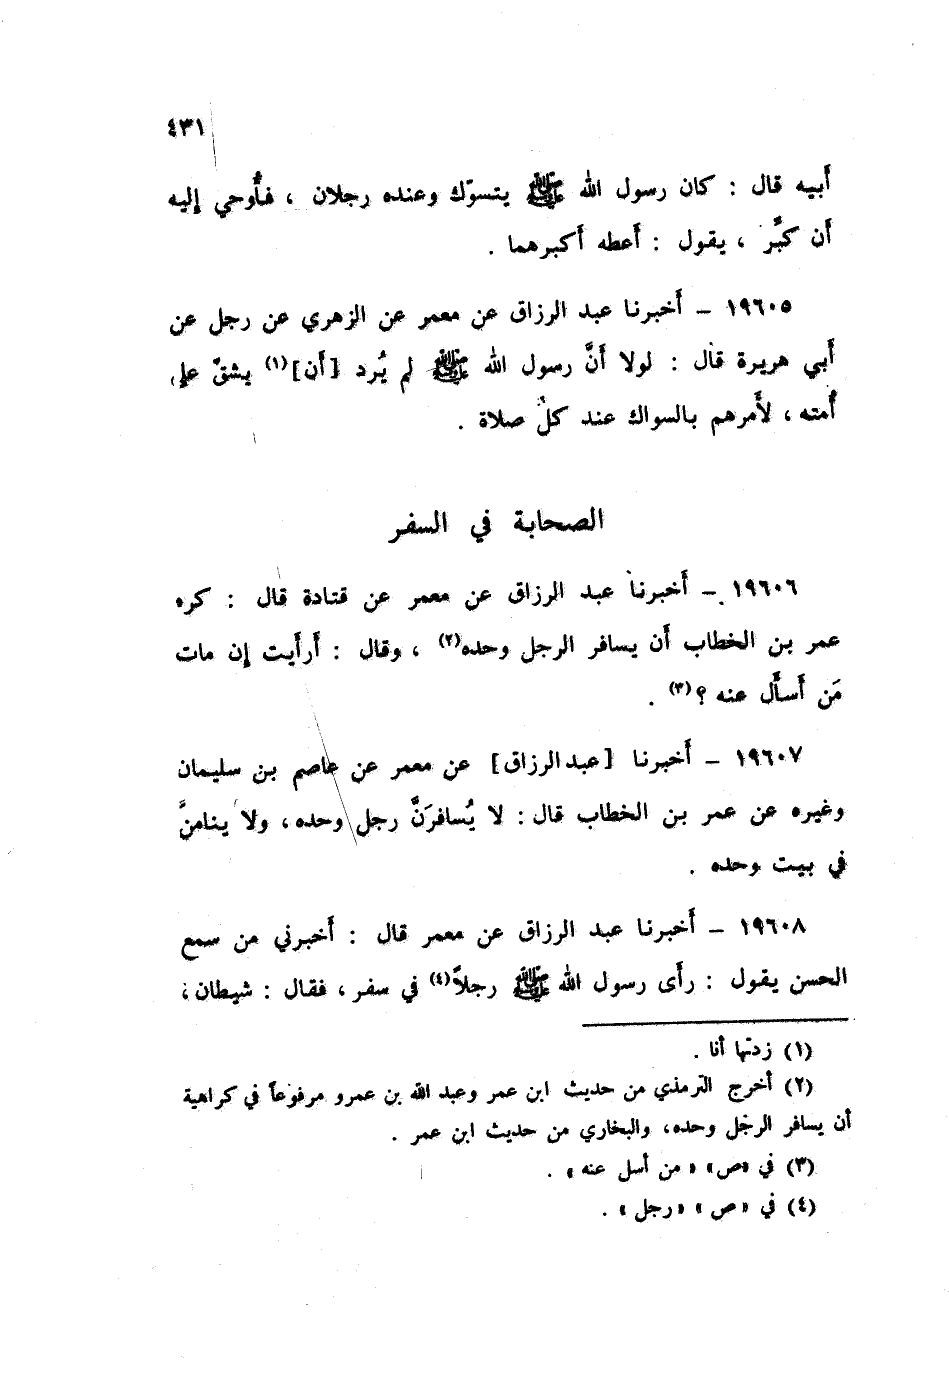 ٤٣١
أبيه قال : كان رسول الله ﷺ يتسوّك وعنده رجلان ، فأُوحي إليه
أن كبِّر ، يقول : أعطه أكبرهما .
١٩٦٠٥ – أخبرنا عبد الرزاق عن معمر عن الزهري عن رجل عن
أبي هريرة قال : لولا أنَّ رسول الله ﷺ لم يُرد [أن](١) يشقّ على
أُمته ، لأمرهم بالسواك عند كلّ صلاة .
الصحابة في السفر
١٩٦٠٦ – أخبرنا عبد الرزاق عن معمر عن قتادة قال : كره
عمر بن الخطاب أن يسافر الرجل وحده(٢) ، وقال : أرأيت إن مات
مَن أسأل عنه ؟(٣) .
١٩٦٠٧ – أخبرنا [عبد الرزاق] عن معمر عن عاصم بن سليمان
وغيره عن عمر بن الخطاب قال : لا يُسافرَنَّ رجل وحده ، ولا ينامنَّ
في بيت وحده .
١٩٦٠٨ – أخبرنا عبد الرزاق عن معمر قال : أخبرني من سمع
الحسن يقول : رأى رسول الله ﷺ رجلاً(٤) في سفر ، فقال : شيطان ،
(١) زدتها أنا .
(٢) أخرج الترمذي من حديث ابن عمر وعبد الله بن عمرو مرفوعاً في كراهية
أن يسافر الرجل وحده ، والبخاري من حديث ابن عمر .
(٣) في «ص» « من أسل عنه » .
(٤) في « ص » « رجل » .